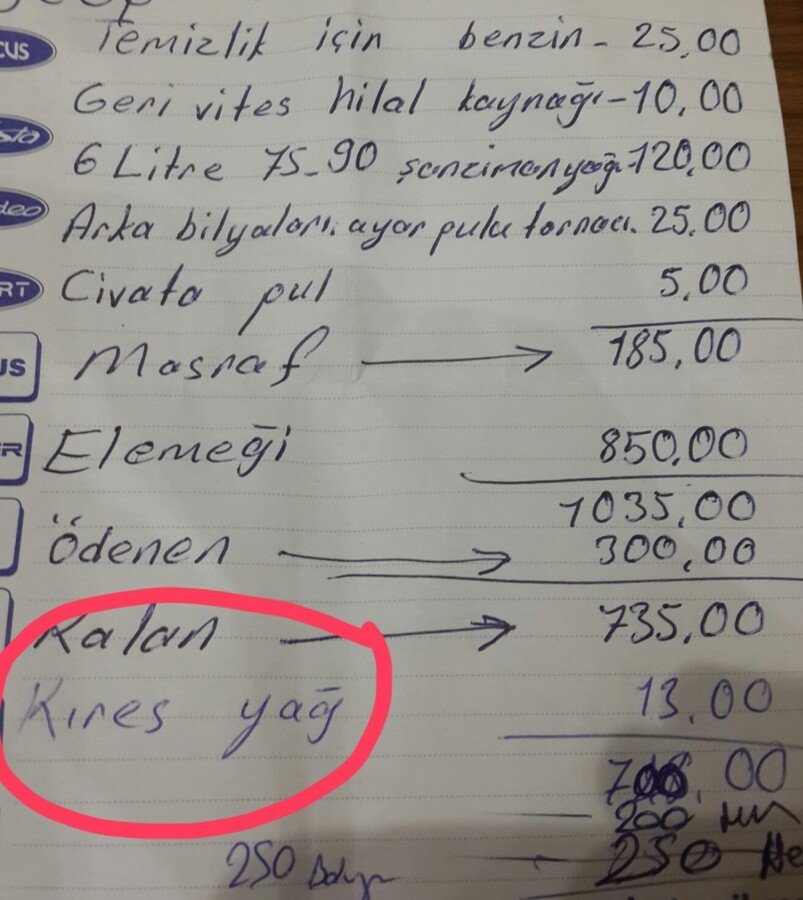 CUS Temizlik için benzin - 25,00
Geri vites hilal kaynağı - 10,00
6 Litre 75-90 şanzimanyağı - 120,00
Arka bilyaları. ayar pulu tornacı. 25.00
RT Civata pul 5,00
185,00
US Masraf →
ER Elemeği 850,00
1035,00
Ödenen → 300,00
Kalan → 735,00
Kıres yağ 13.00
00
200
250 250